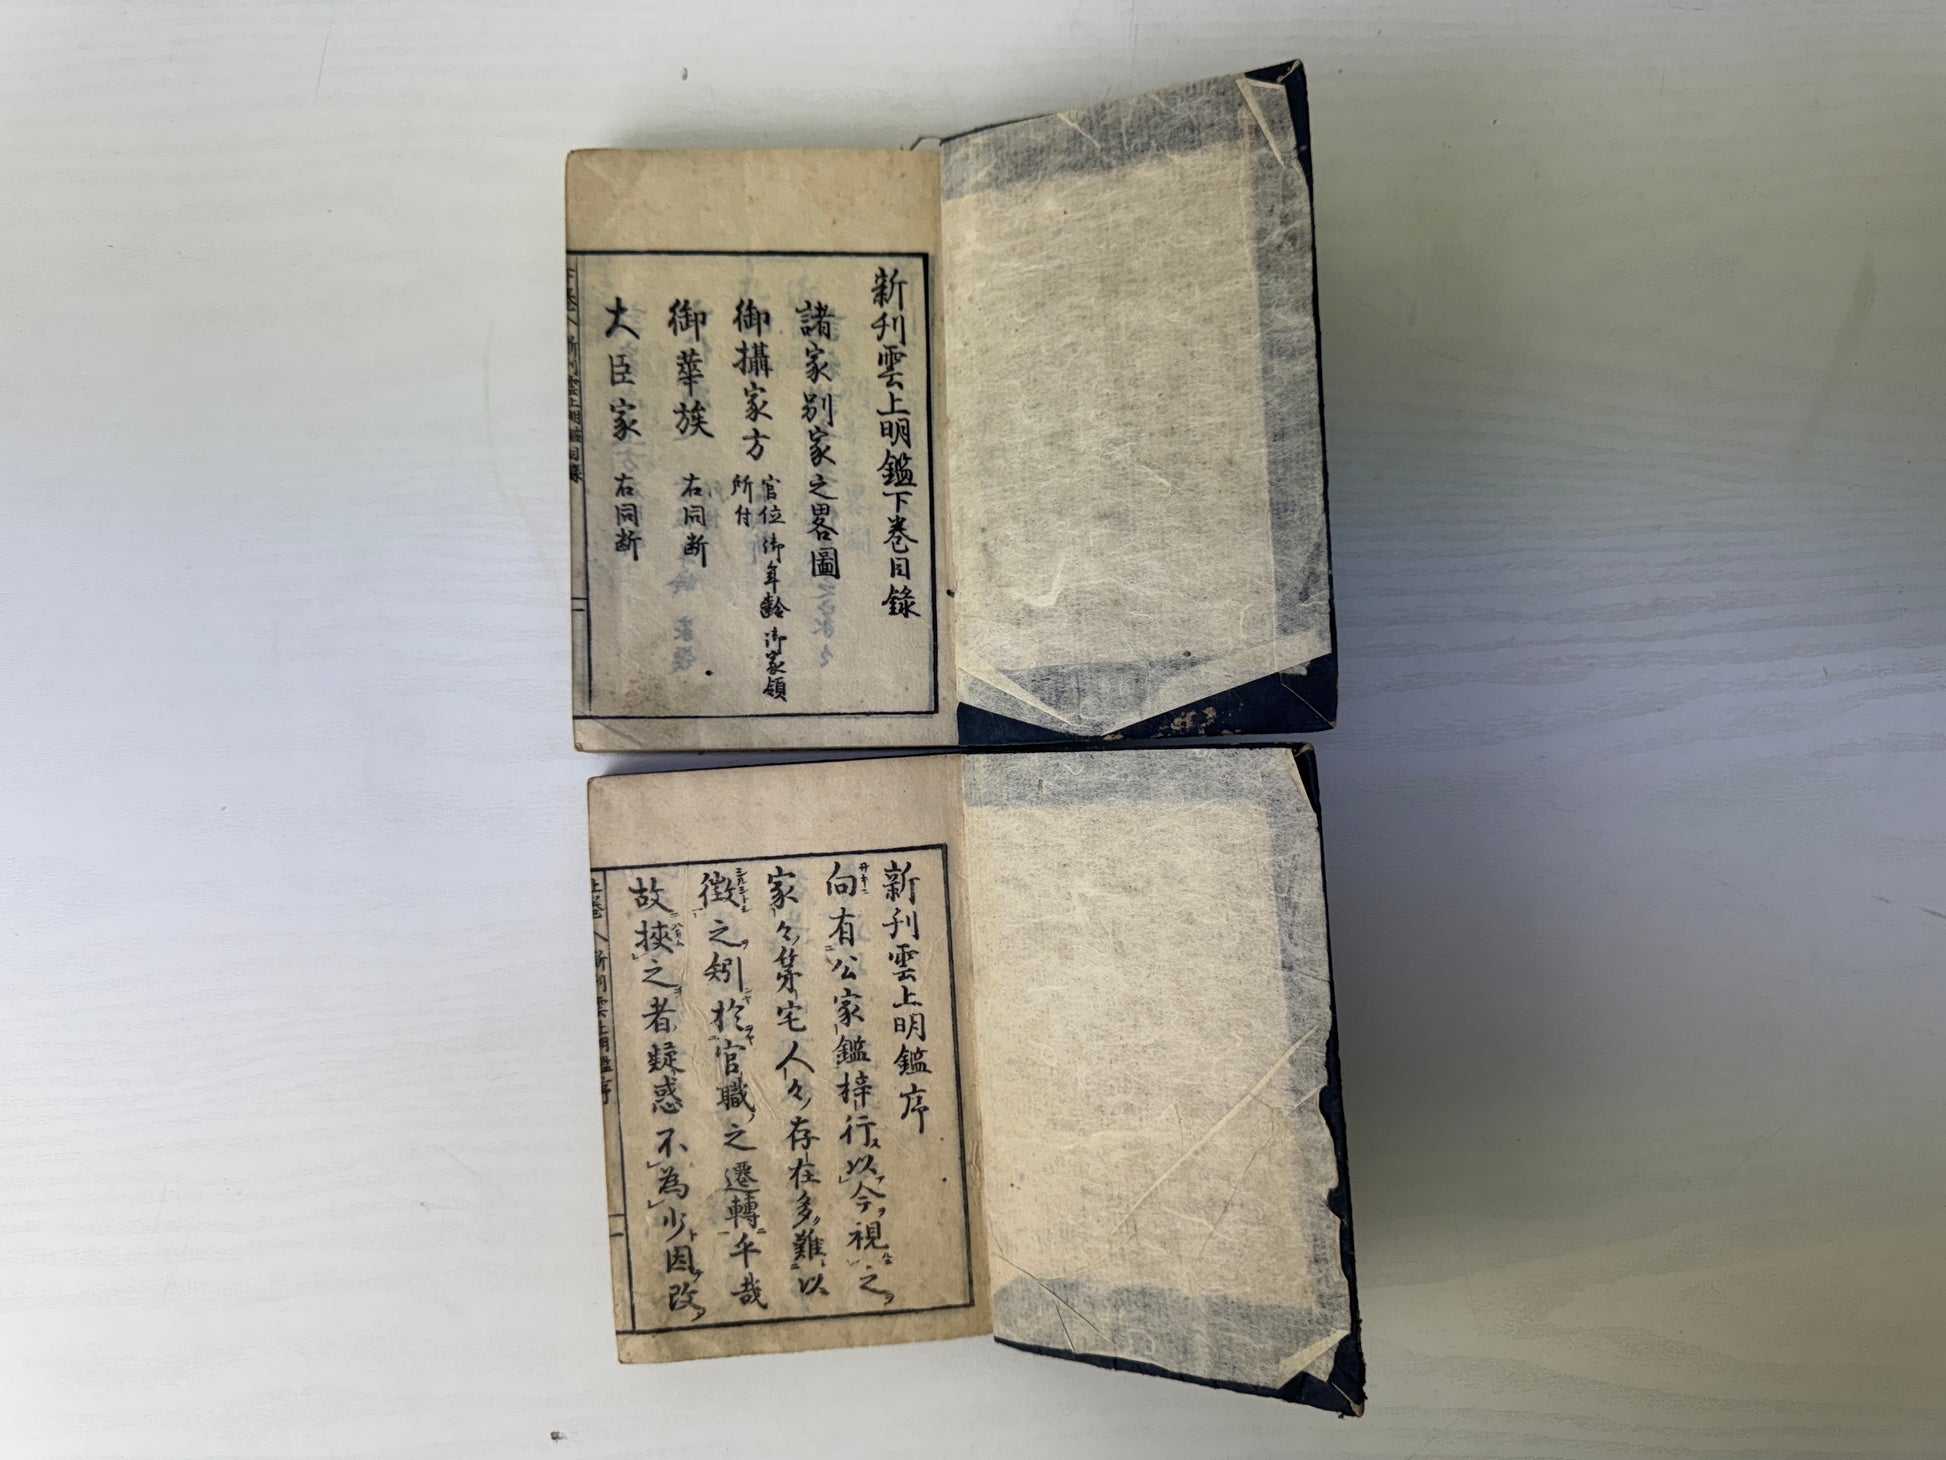 新刋雲上明鑑下巻目録
諸家別家之畧圖
御攝家方 官位 御年齢 御家領
所付
御華族 右同断
大臣家 右同断
新刋雲上明鑑目録
新刋雲上明鑑序
向有公家鑑梓行以今視之
家々第宅人々存在多難以
徴之矧於官職之遷轉乎哉
故挾之者疑惑不為少因改
上巻 新刋雲上明鑑序